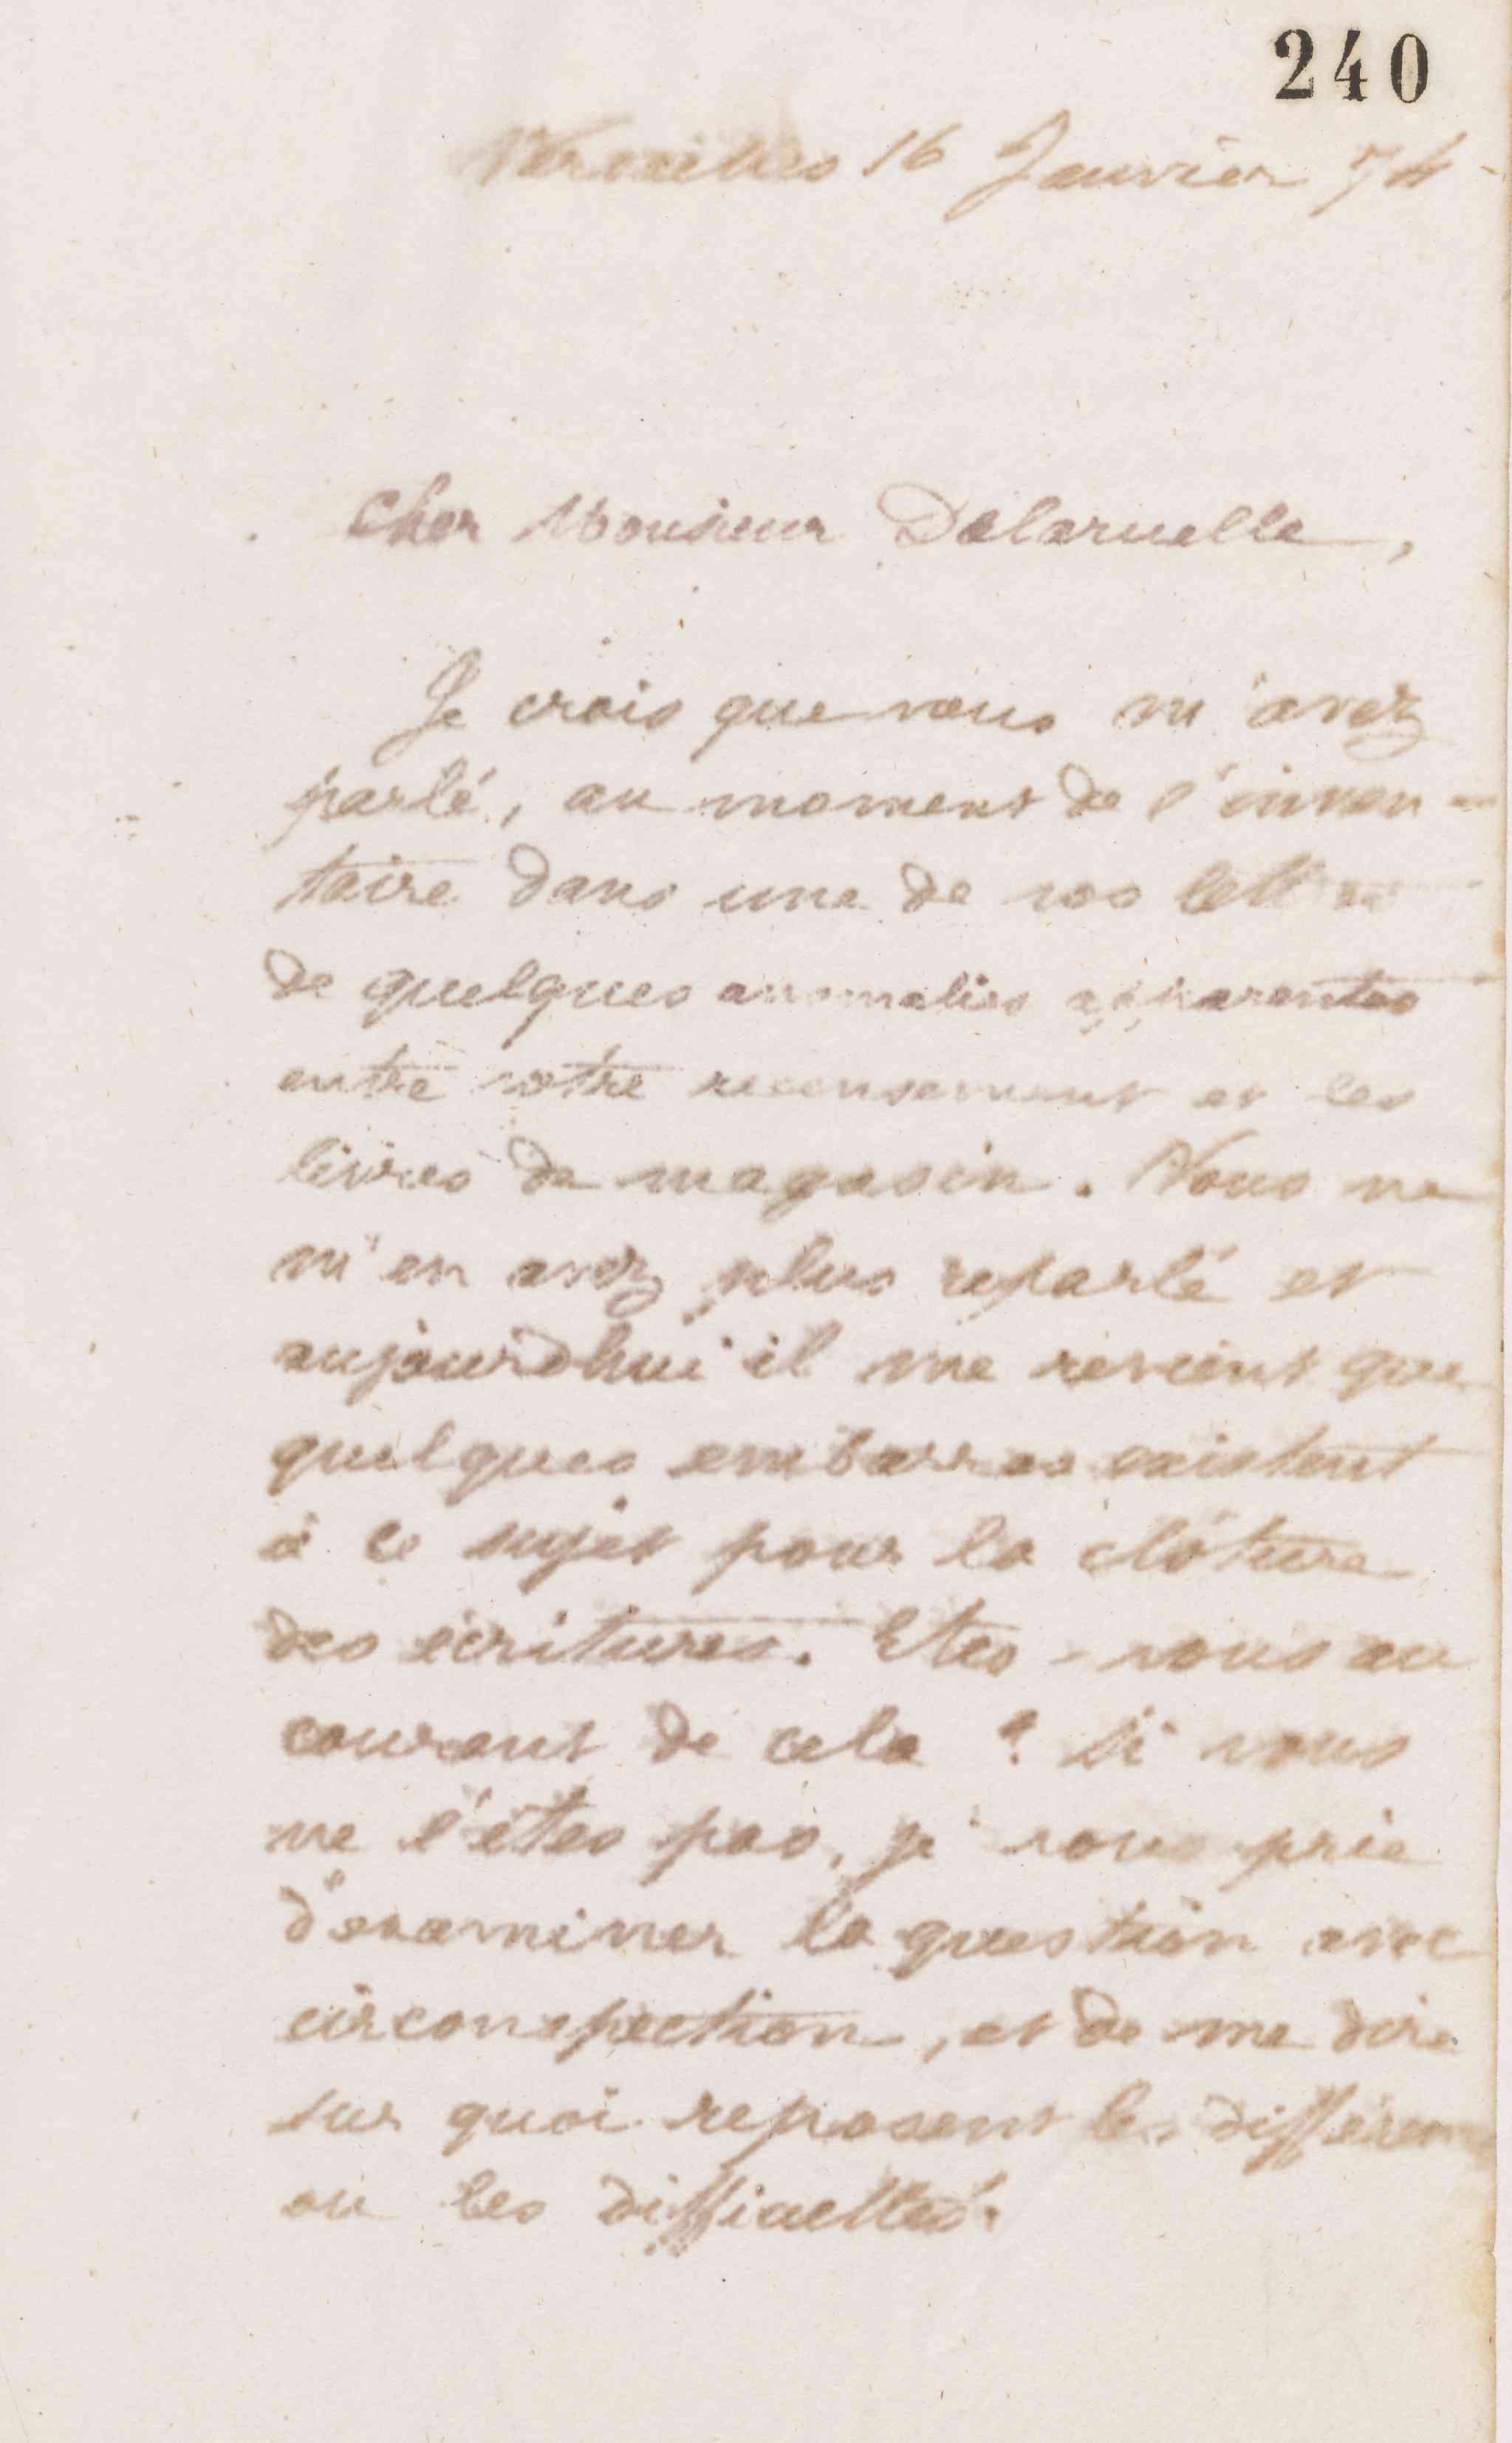 240
Versailles 16 Janvier 74
Cher Monsieur Delaruelle,
Je crois que vous m'avez
parlé, au moment de l'inven-
taire dans une de vos lettres
de quelques anomalies apparentes
entre votre recensement et les
livres de magasin. Vous ne
m'en avez plus reparlé et
aujourd'hui il me revient que
quelques embarras existent
à ce sujet pour la clôture
des écritures. Etes-vous au
courant de cela ? Si vous
ne l'êtes pas, je vous prie
d'examiner la question avec
circonspection, et de me dire
sur quoi reposent les différences
ou les difficultés.